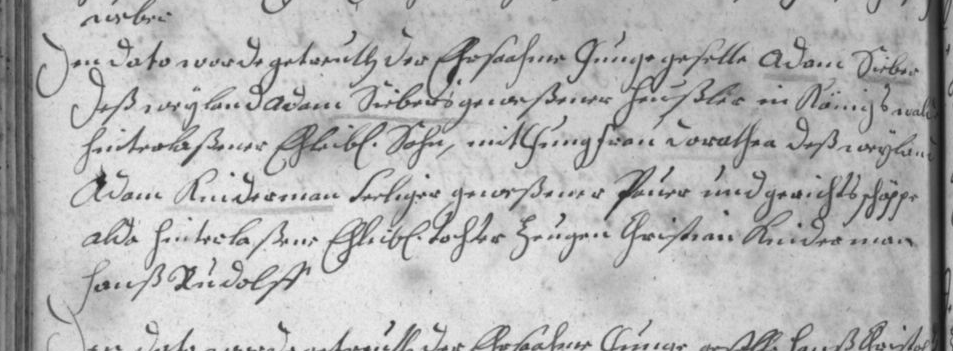 weber
Jen dato worde getreuth der Ehrsahme Junge geselle Adam Sieber
deß weyland Adam Siebers geweßener heußler in Königs wald
hinterlaßener Ehleibl. Sohn, mit Jungfrau Dorothea deß weyland
Adam Kinderman seeliger geweßener Pauer und gerichts schöppe
alda hinterlaßene Ehleibl tochter Zeugen Christian Kinderman
Hanß Rudolff
Jen dato worde getreuth der Ehrsahme Junge geselle Hanß Christop